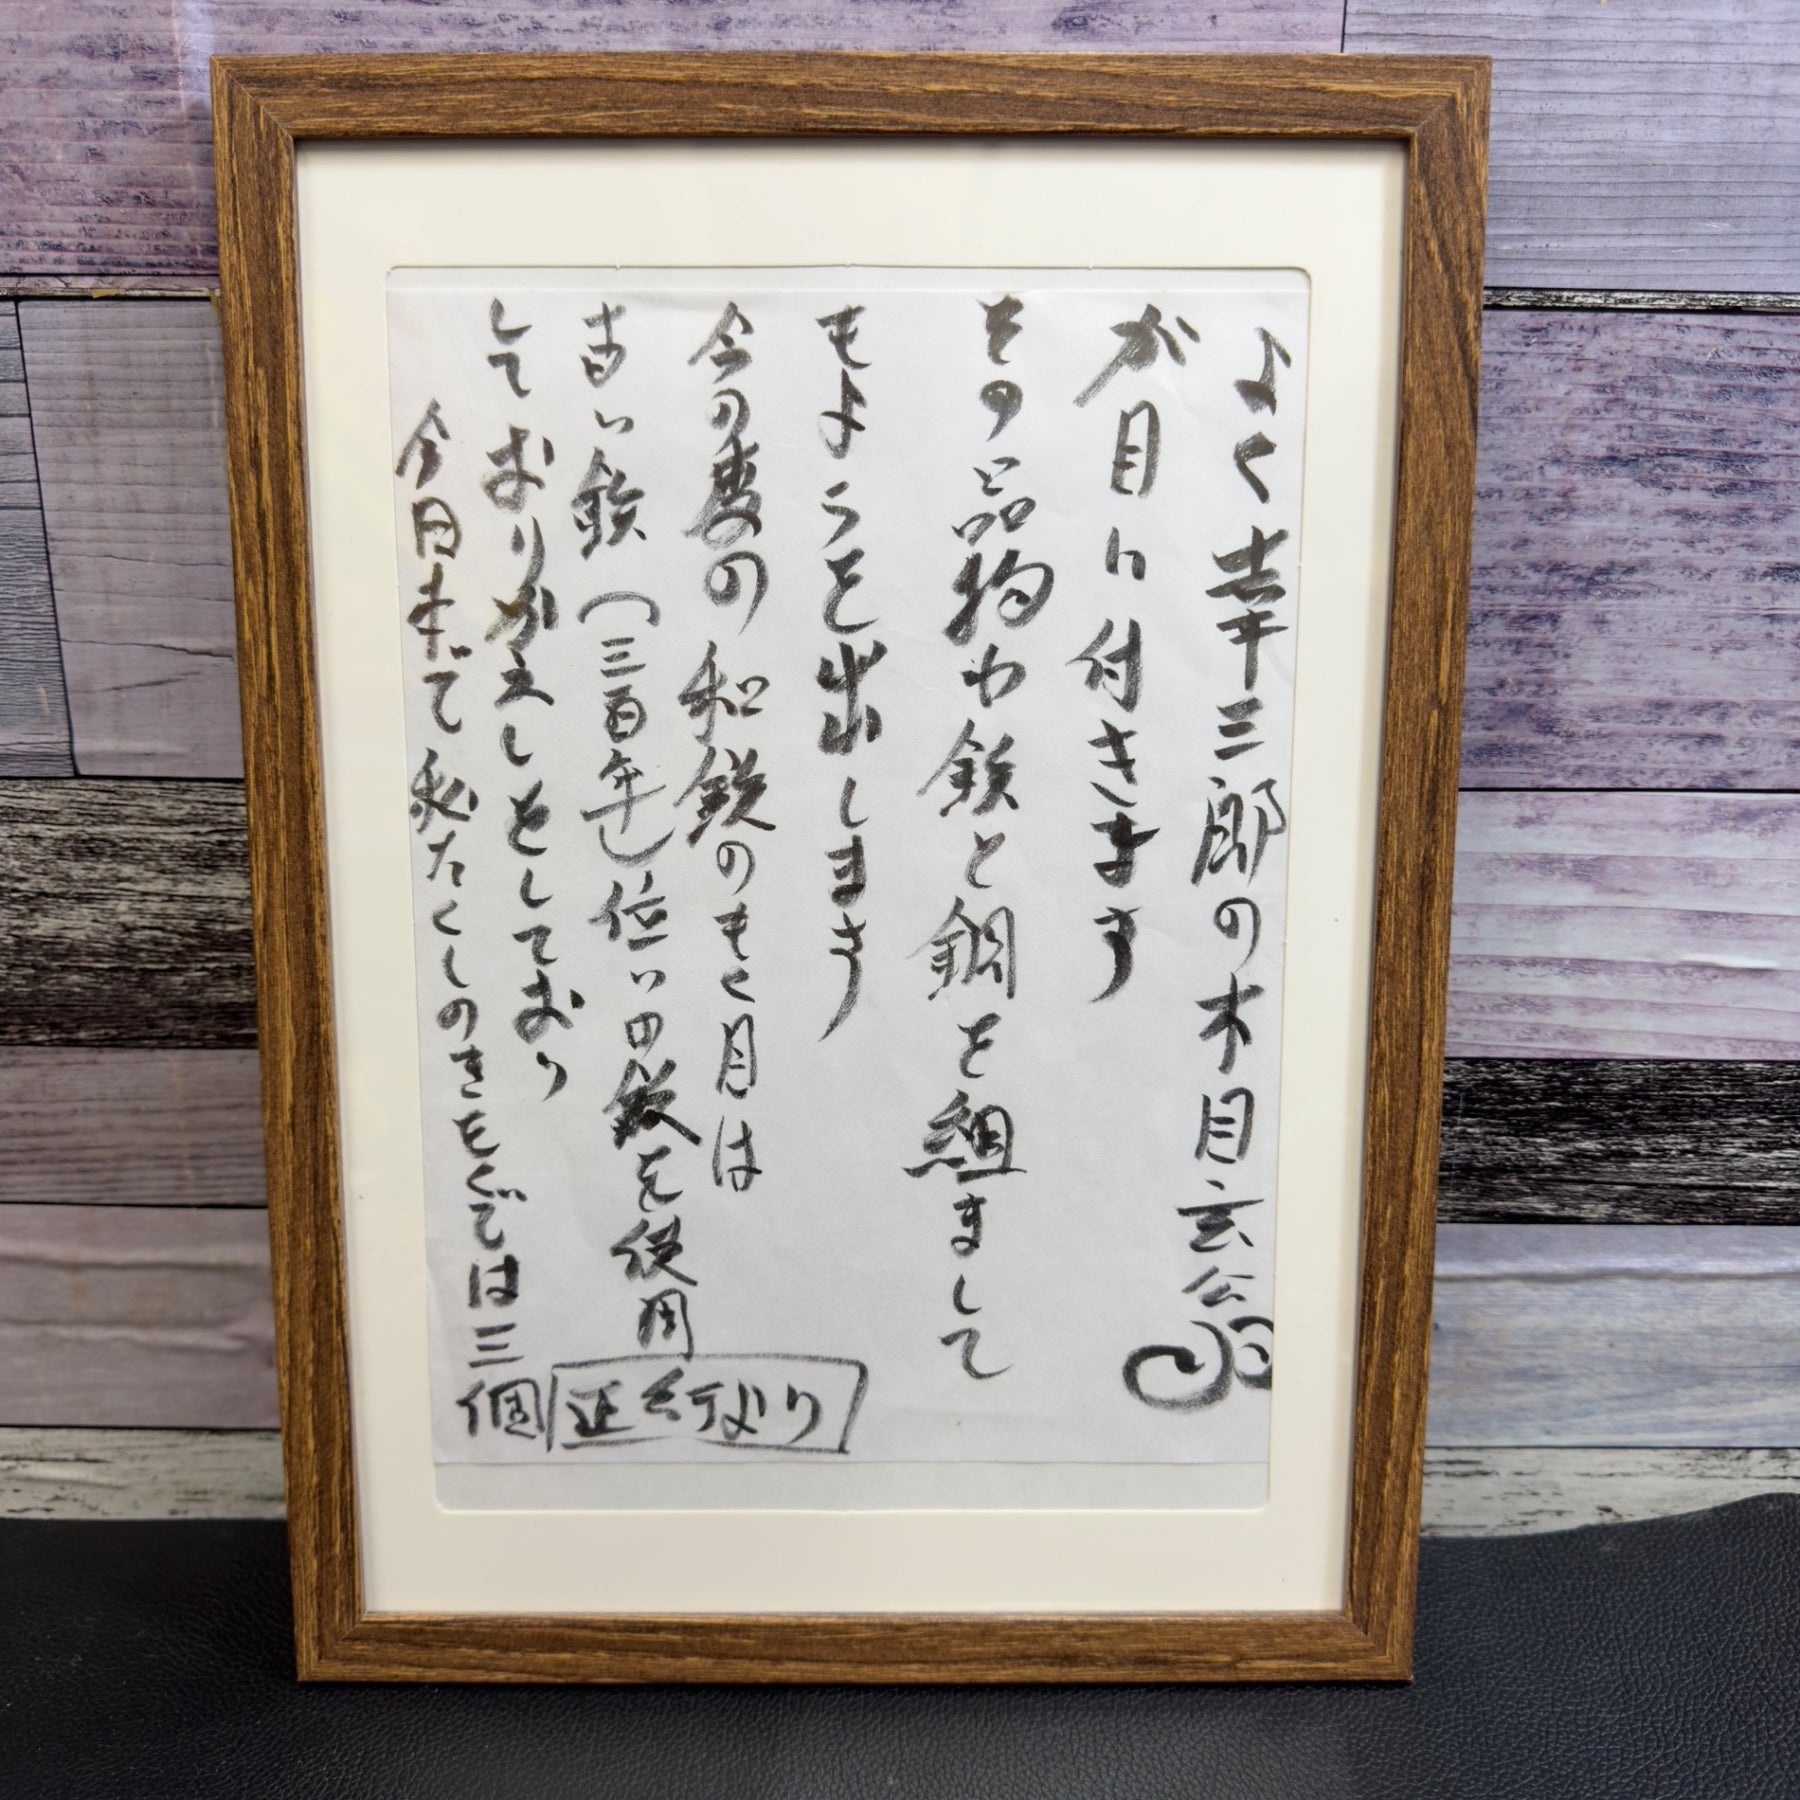 よく幸三郎の木目玄公
が目に付きます
その品物わ鉄と銅を組まして
もようを出しまさ
今の度の和鉄のもく目は
古い鉄(三百年し)位いの鉄を使用
しておりかえしとしており
今日まで私たくしのきをくでは三個
正行より